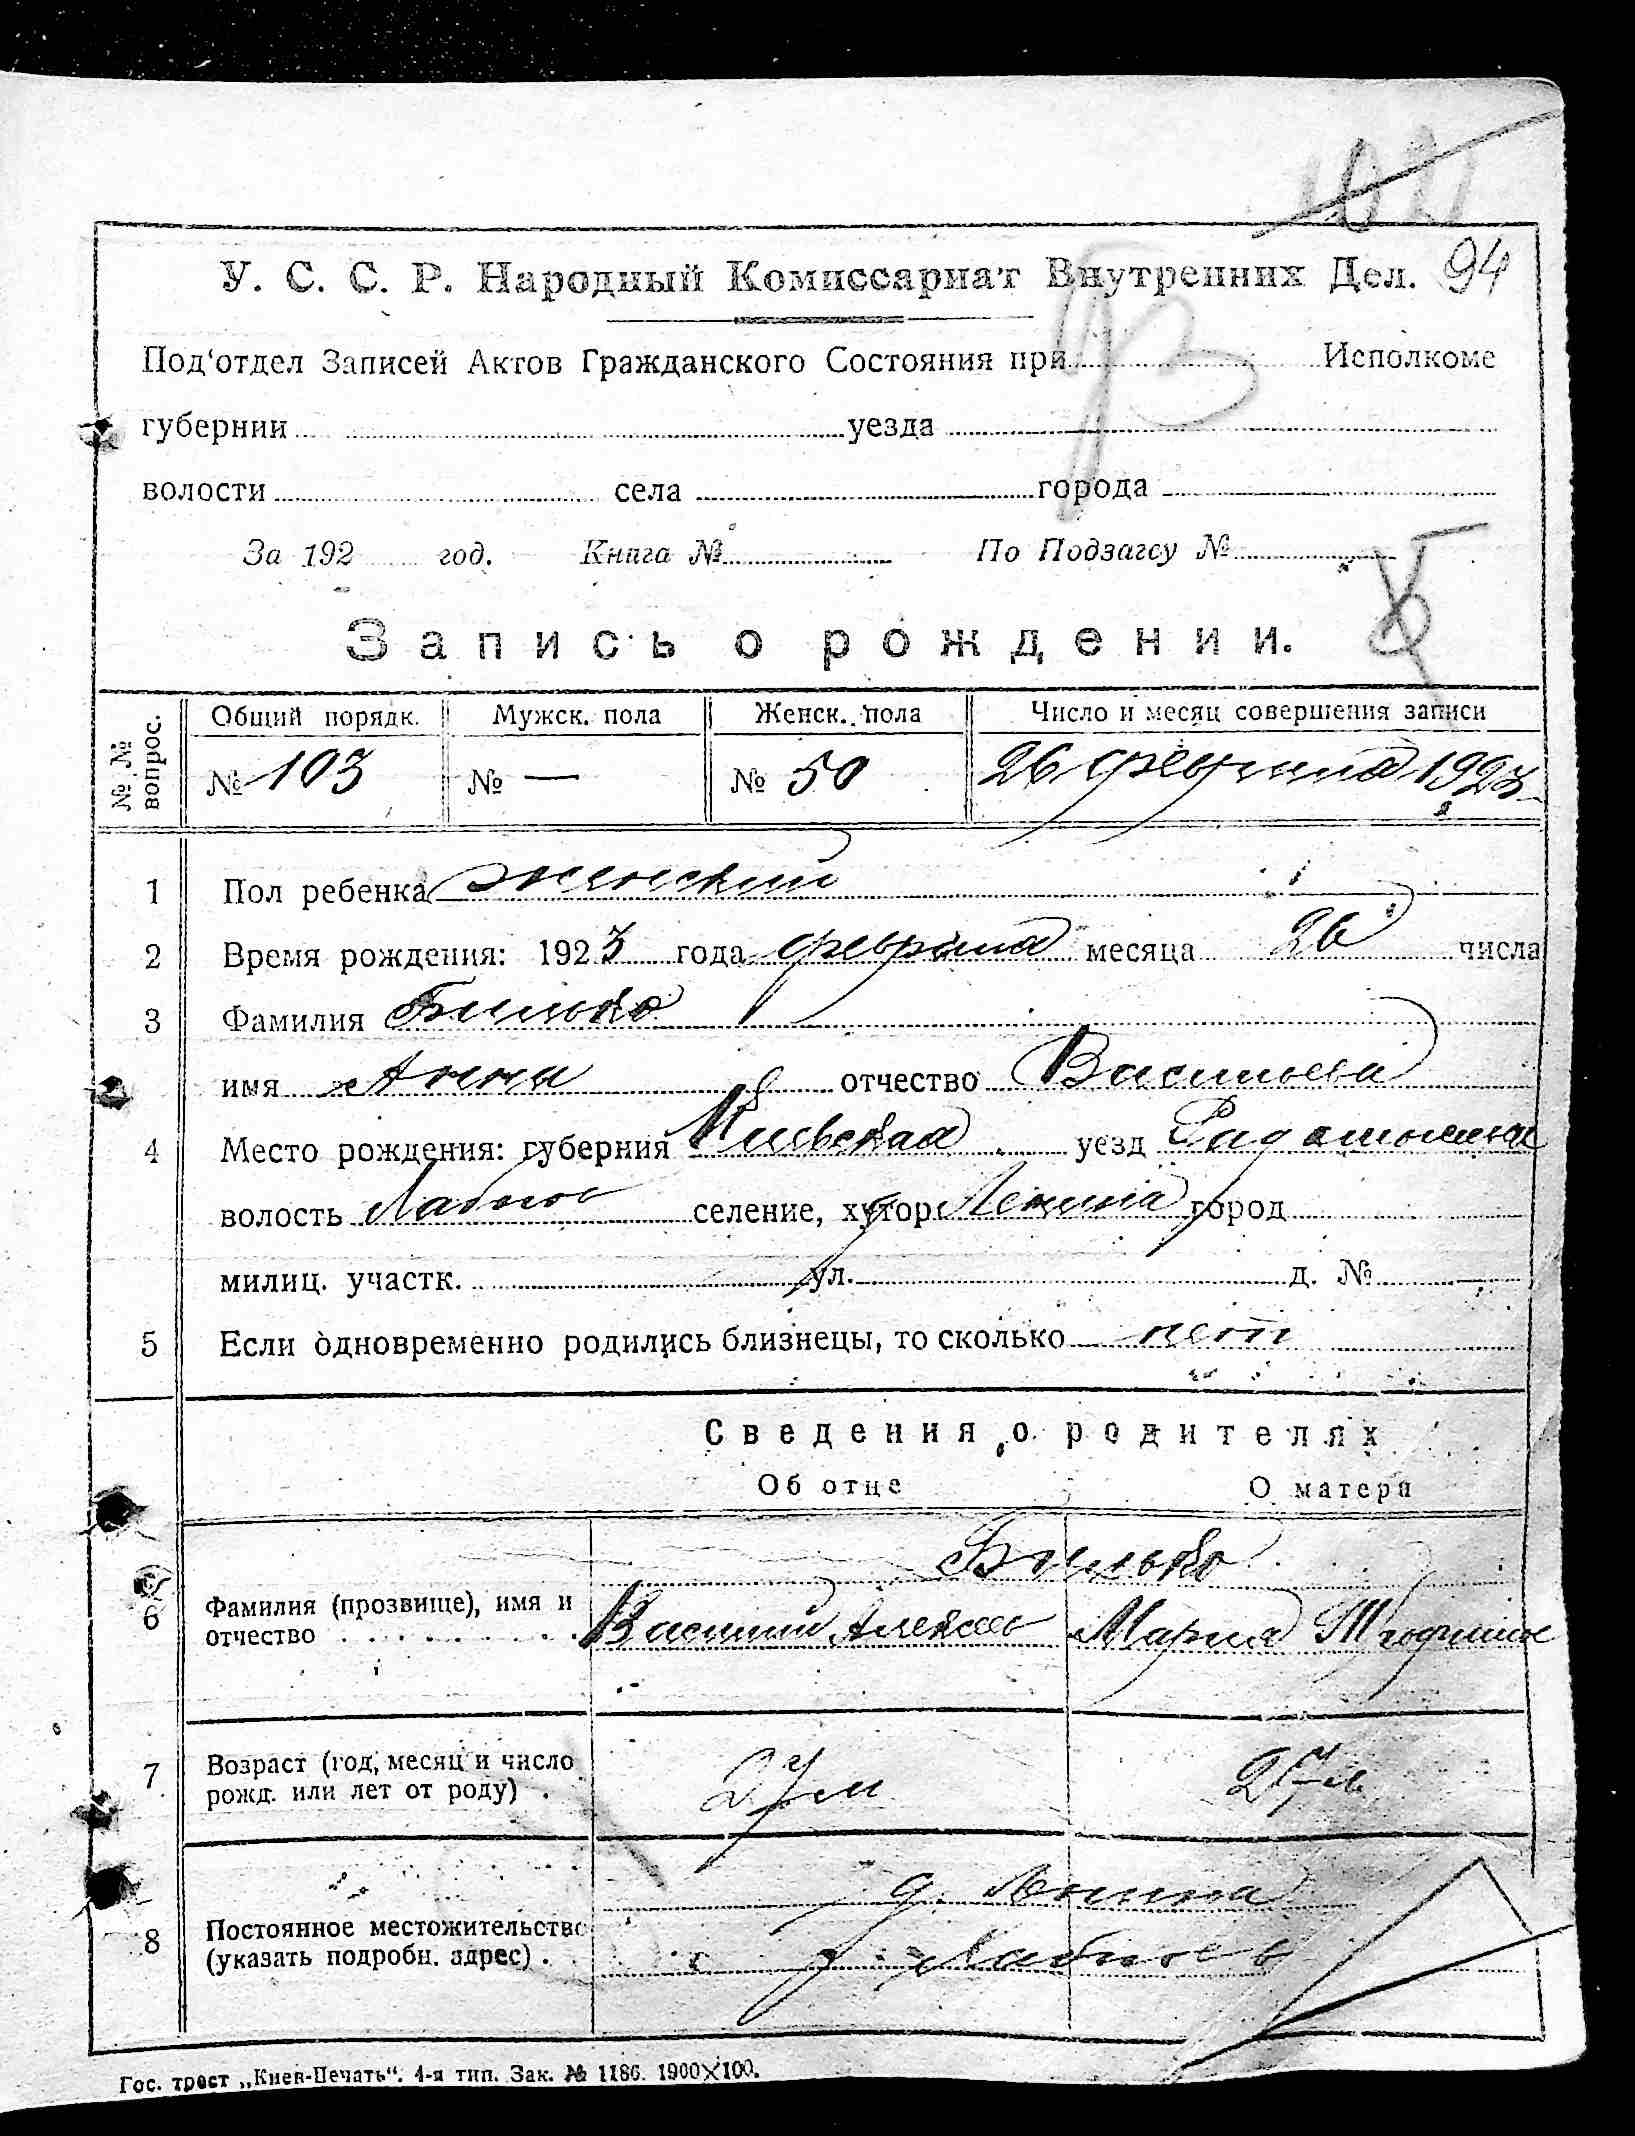 94
У. С. С. Р. Народный Комиссариат Внутренних Дел.
93
Под‘отдел Записей Актов Гражданского Состояния при Исполкоме
губернии уезда
волости села города
За 192 год. Книга № По Подзагсу №
Запись о рождении.
№ № вопрос.
Общий порядк. Мужск. пола Женск. пола Число и месяц совершения записи
№ 103 № — № 50 26 февраля 1923
1 Пол ребенка женский
2 Время рождения: 1923 года февраля месяца 26 числа
3 Фамилия Билько
имя Анна отчество Васильева
4 Место рождения: губерния Киевская уезд
волость селение, хутор Ленина город
милиц. участк. ул. д. №
5 Если одновременно родились близнецы, то сколько нет
Сведения о родителях
Об отце О матери
Билько
6 Фамилия (прозвище), имя и
отчество Василий Алексеев Мария
7 Возраст (год, месяц и число
рожд. или лет от роду) . 27 л 27 л
д. Ленина
8 Постоянное местожительство
(указать подробн. адрес) .
Гос. трест „Киев-Печать“. 4-я тип. Зак. № 1186. 1900X100.